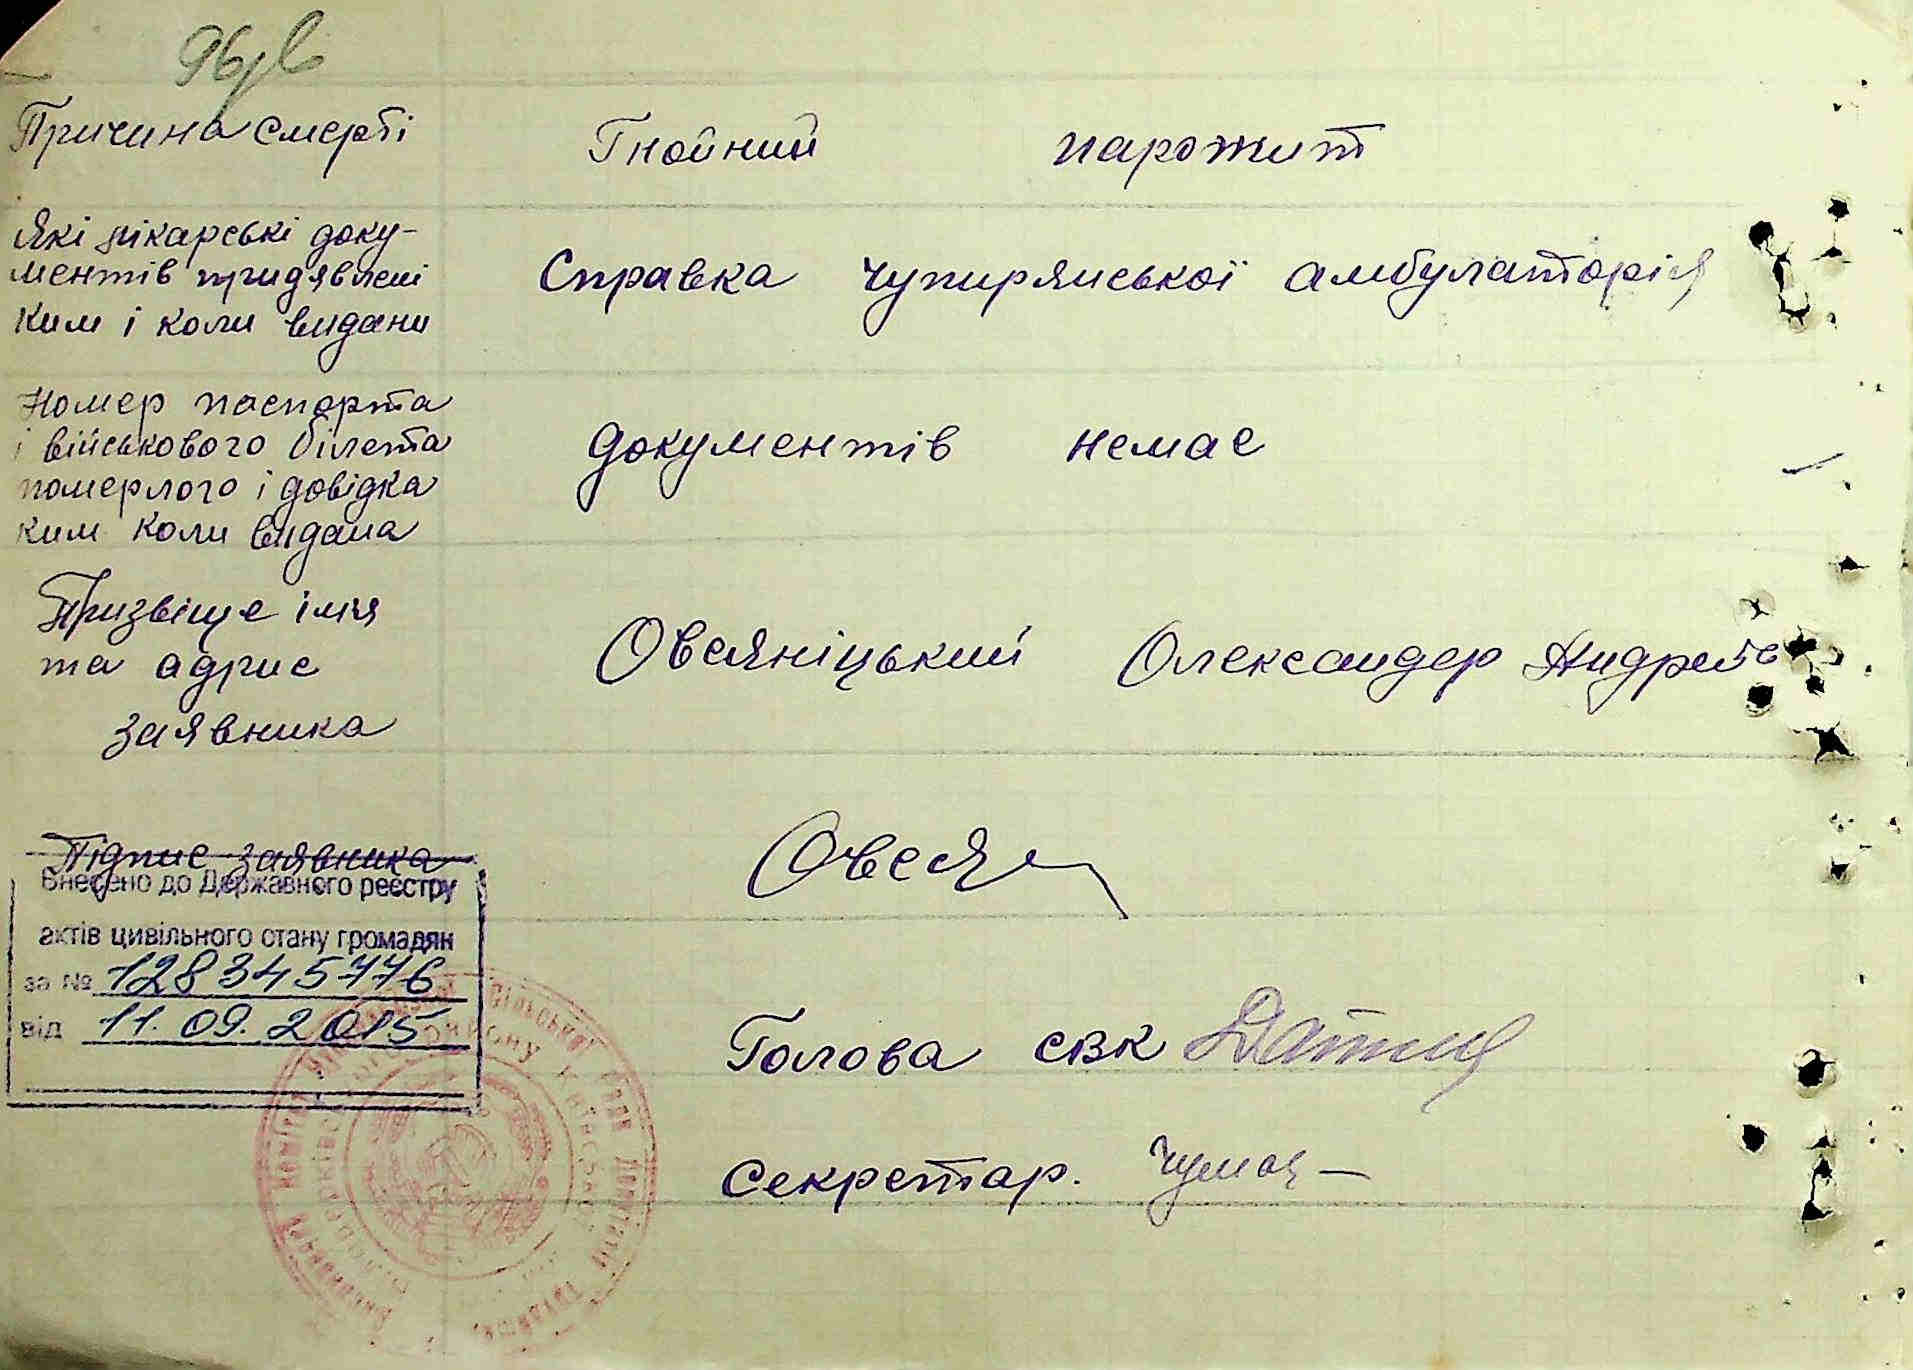 96
Причина смерті
Гнойний парожит
Які лікарські доку-
ментів придявлені
ким і коли видани
Справка чупирянської амбулаторія
Номер паспорта
і військового білета
померлого і довідка
ким коли видана
документів немає
Призвіще імя
та адрис
заявника
Овсяніцький Олександер Андреїв
Підпис заявника
Овсян
Внесено до Державного реєстру
актів цивільного стану громадян
за № 128345776
від 11.09.2015
Голова СВК
Секретар.